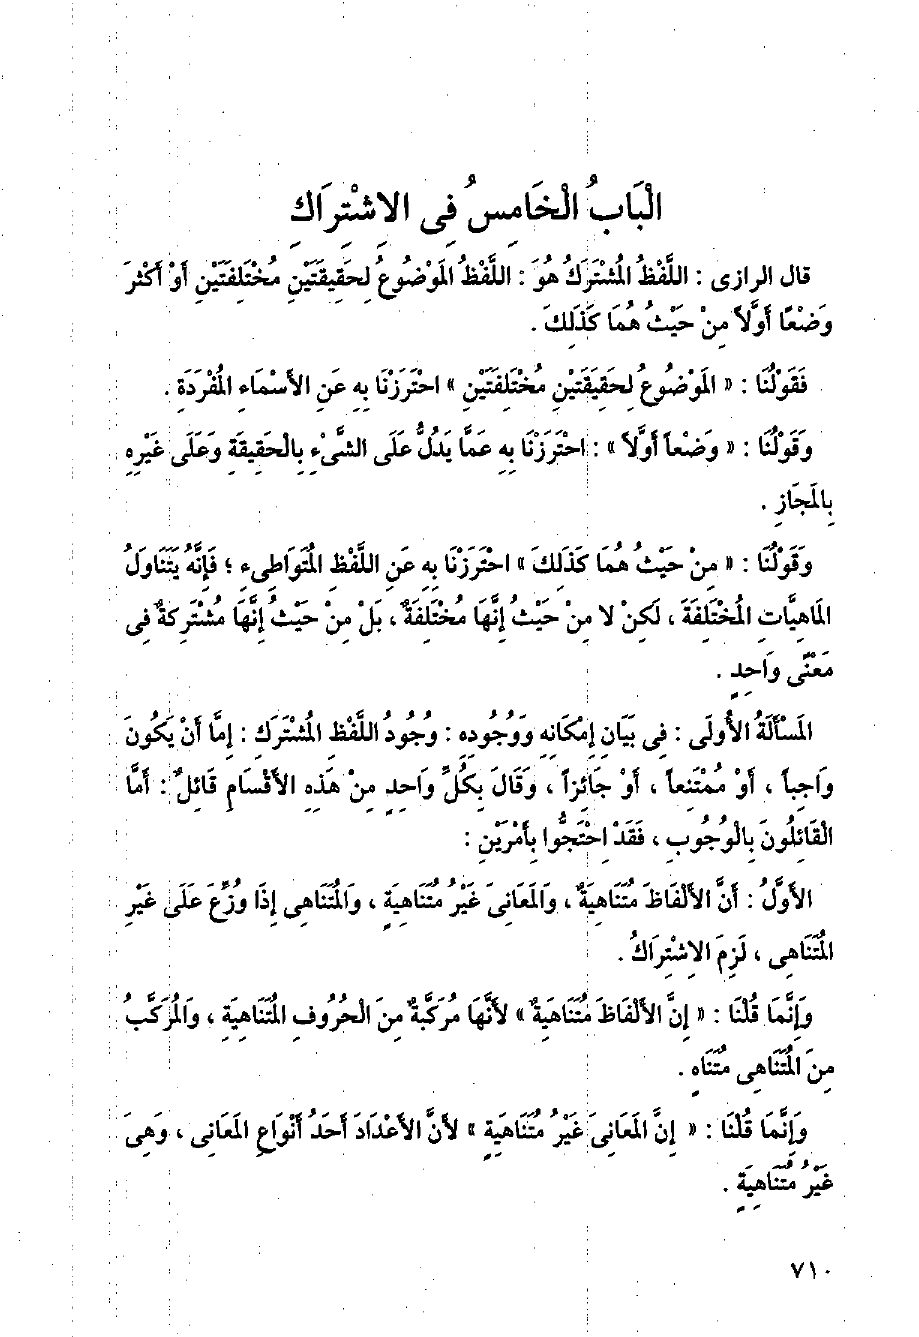 الْبَابُ الْخَامِسُ فِى الاِشْتِرَاكِ
قال الرازى : اللَّفْظُ الْمُشْتَرَكُ هُوَ : اللَّفْظُ الْمَوْضُوعُ لِحَقِيقَتَيْنِ مُخْتَلِفَتَيْنِ أَوْ أَكْثَرَ
وَضْعًا أَوَّلاً مِنْ حَيْثُ هُمَا كَذَلِكَ .
فَقَوْلُنَا : « الْمَوْضُوعُ لِحَقِيقَتَيْنِ مُخْتَلِفَتَيْنِ » احْتَرَزْنَا بِهِ عَنِ الأَسْمَاءِ الْمُفْرَدَةِ .
وَقَوْلُنَا : « وَضْعاً أَوَّلاً » : احْتَرَزْنَا بِهِ عَمَّا يَدُلُّ عَلَى الشَّىْءِ بِالْحَقِيقَةِ وَعَلَى غَيْرِهِ
بِالْمَجَازِ .
وَقَوْلُنَا : « مِنْ حَيْثُ هُمَا كَذَلِكَ » احْتَرَزْنَا بِهِ عَنِ اللَّفْظِ الْمُتَوَاطِىءِ ؛ فَإِنَّهُ يَتَنَاوَلُ
الْمَاهِيَّاتِ الْمُخْتَلِفَةَ ، لَكِنْ لا مِنْ حَيْثُ إِنَّهَا مُخْتَلِفَةٌ ، بَلْ مِنْ حَيْثُ إِنَّهَا مُشْتَرِكَةٌ فِى
مَعْنًى وَاحِدٍ .
الْمَسْأَلَةُ الأُولَى : فِى بَيَانِ إِمْكَانِهِ وَوُجُودِهِ : وُجُودُ اللَّفْظِ الْمُشْتَرَكِ : إِمَّا أَنْ يَكُونَ
وَاجِباً ، أَوْ مُمْتَنِعاً ، أَوْ جَائِزاً ، وَقَالَ بِكُلِّ وَاحِدٍ مِنْ هَذِهِ الأَقْسَامِ قَائِلٌ : أَمَّا
الْقَائِلُونَ بِالْوُجُوبِ ، فَقَدْ احْتَجُّوا بِأَمْرَيْنِ :
الأَوَّلُ : أَنَّ الأَلْفَاظَ مُتَنَاهِيَةٌ ، وَالْمَعَانِىَ غَيْرُ مُتَنَاهِيَةٍ ، وَالْمُتَنَاهِى إِذَا وُزِّعَ عَلَى غَيْرِ
الْمُتَنَاهِى ، لَزِمَ الاِشْتِرَاكُ .
وَإِنَّمَا قُلْنَا : « إِنَّ الأَلْفَاظَ مُتَنَاهِيَةٌ » لأَنَّهَا مُرَكَّبَةٌ مِنَ الْحُرُوفِ الْمُتَنَاهِيَةِ ، وَالْمُرَكَّبُ
مِنَ الْمُتَنَاهِى مُتَنَاهٍ .
وَإِنَّمَا قُلْنَا : « إِنَّ الْمَعَانِىَ غَيْرُ مُتَنَاهِيَةٍ » لأَنَّ الأَعْدَادَ أَحَدُ أَنْوَاعِ الْمَعَانِى ، وَهِىَ
غَيْرُ مُتَنَاهِيَةٍ .
٧١٠